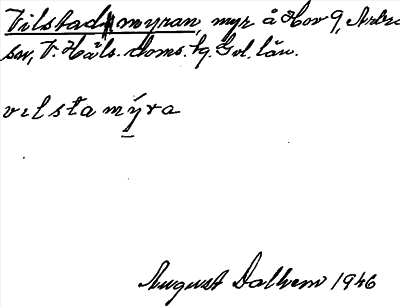 Vilstadmyran, myr å Hov 9, Arbrå
sn, V. Häls. doms. tg. Gvl. län.
vilstamýra
August Dalhem 1946